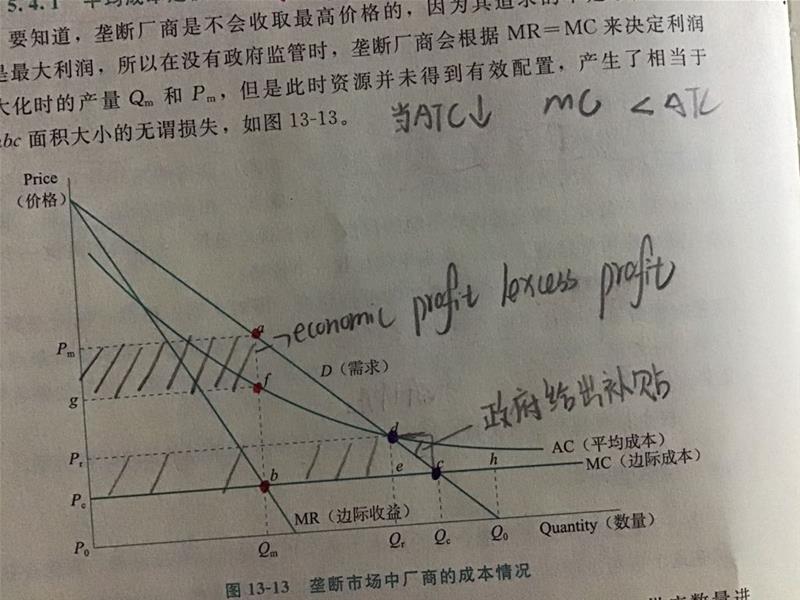 5.4.1 平均成本
要知道，垄断厂商是不会收取最高价格的，因为其追求的不是
是最大利润，所以在没有政府监管时，垄断厂商会根据 MR＝MC 来决定利润
大化时的产量 Qm 和 Pm，但是此时资源并未得到有效配置，产生了相当于
abc 面积大小的无谓损失，如图 13-13。
当ATC↓ MC < ATC
Price
（价格）
economic profit / excess profit
a
Pm
D（需求）
f
g
政府给出补贴
d
AC（平均成本）
Pr
b
e
c
h
MC（边际成本）
Pc
MR（边际收益）
P0
Qm
Qr
Qc
Q0
Quantity（数量）
图 13-13 垄断市场中厂商的成本情况